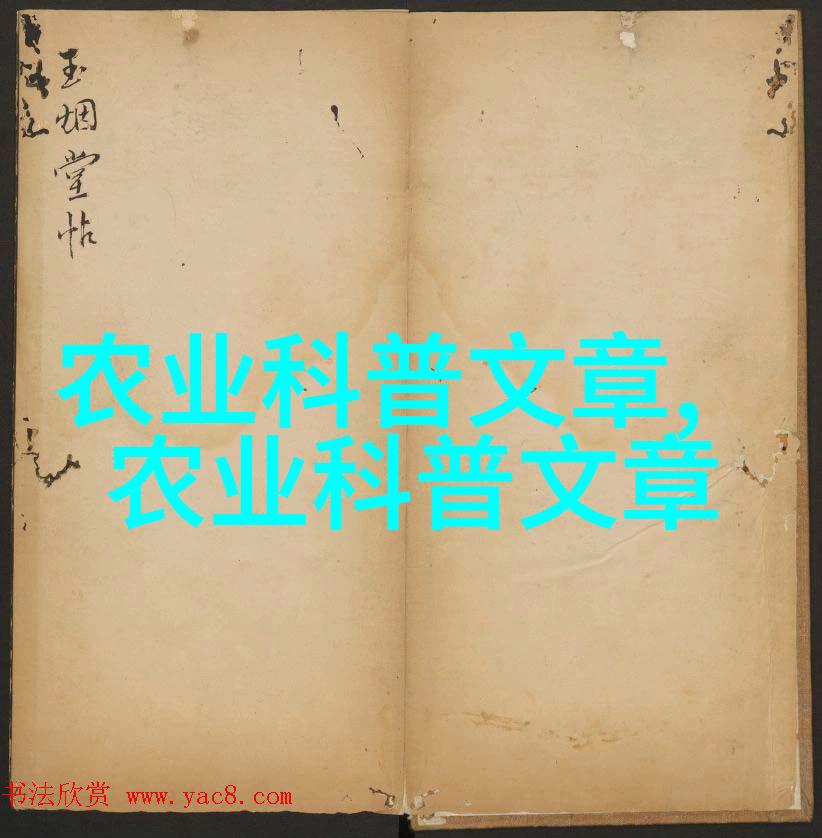 玉烟堂帖
农业科普文章,
农业科普文章
书法欣赏 www.yac8.com